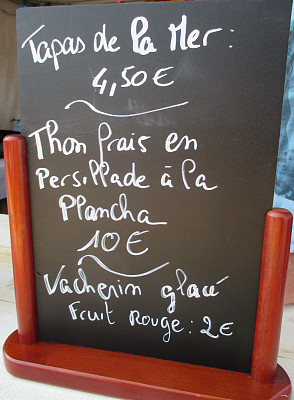 Tapas de la Mer :
4,50 €
Thon frais en
Persillade à la
Plancha
10 €
Vacherin glacé
Fruit Rouge : 2 €